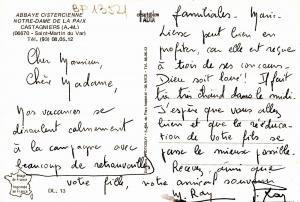 BP 13521
ABBAYE CISTERCIENNE
NOTRE-DAME DE LA PAIX
CASTAGNIERS (A.-M.)
(06670 - Saint-Martin du Var)
TEL. (93) 08.05.12
Cher Monsieur,
Chère Madame,
Nos vacances se
déroulent calmement
à la campagne avec
beaucoup de retrouvailles
familiales. Marie-
Liesse peut bien en
profiter, car elle est reçue
à trois de ses concours.
Dieu soit loué! Il fait
très très chaud dans le midi.
J'espère que vous allez
bien et que la rééduca-
tion de votre fils se
passe le mieux possible.
Recevez, ainsi que
votre fille, notre amical souvenir
M. Ray J. Ray
DL. 13